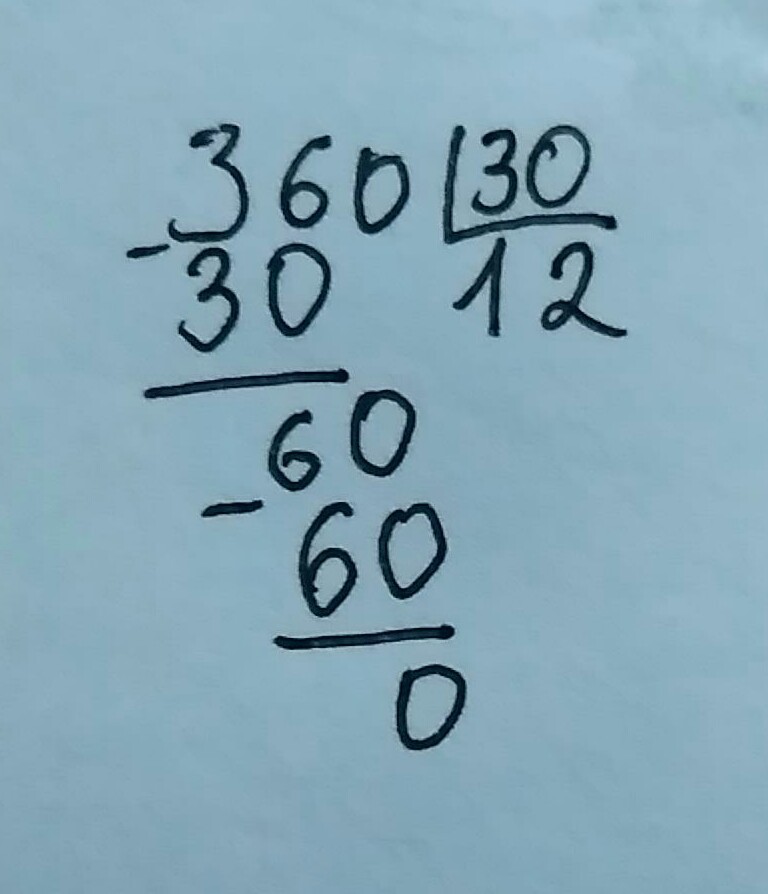 360 30
-30 12
60
-60
0